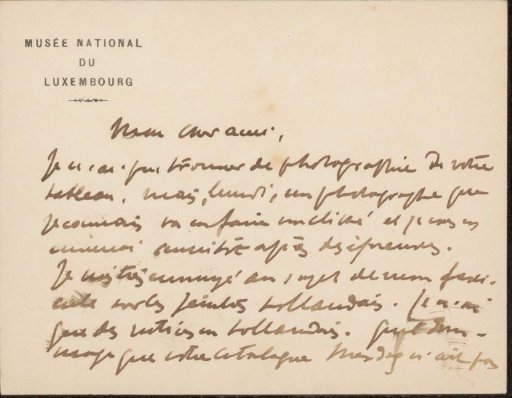 MUSÉE NATIONAL
DU
LUXEMBOURG
Mon cher ami,
Je n'ai pu trouver de photographie de votre
tableau. Mais, lundi, un photographe que
je connais va en faire un cliché et je vous en
enverrai ensuite après des épreuves.
Je suis très ennuyé au sujet de mon fasci-
cule sur les peintres hollandais. Je n'ai
que des notices en hollandais. Quel dom-
mage que votre catalogue Mesdag n'ait pas